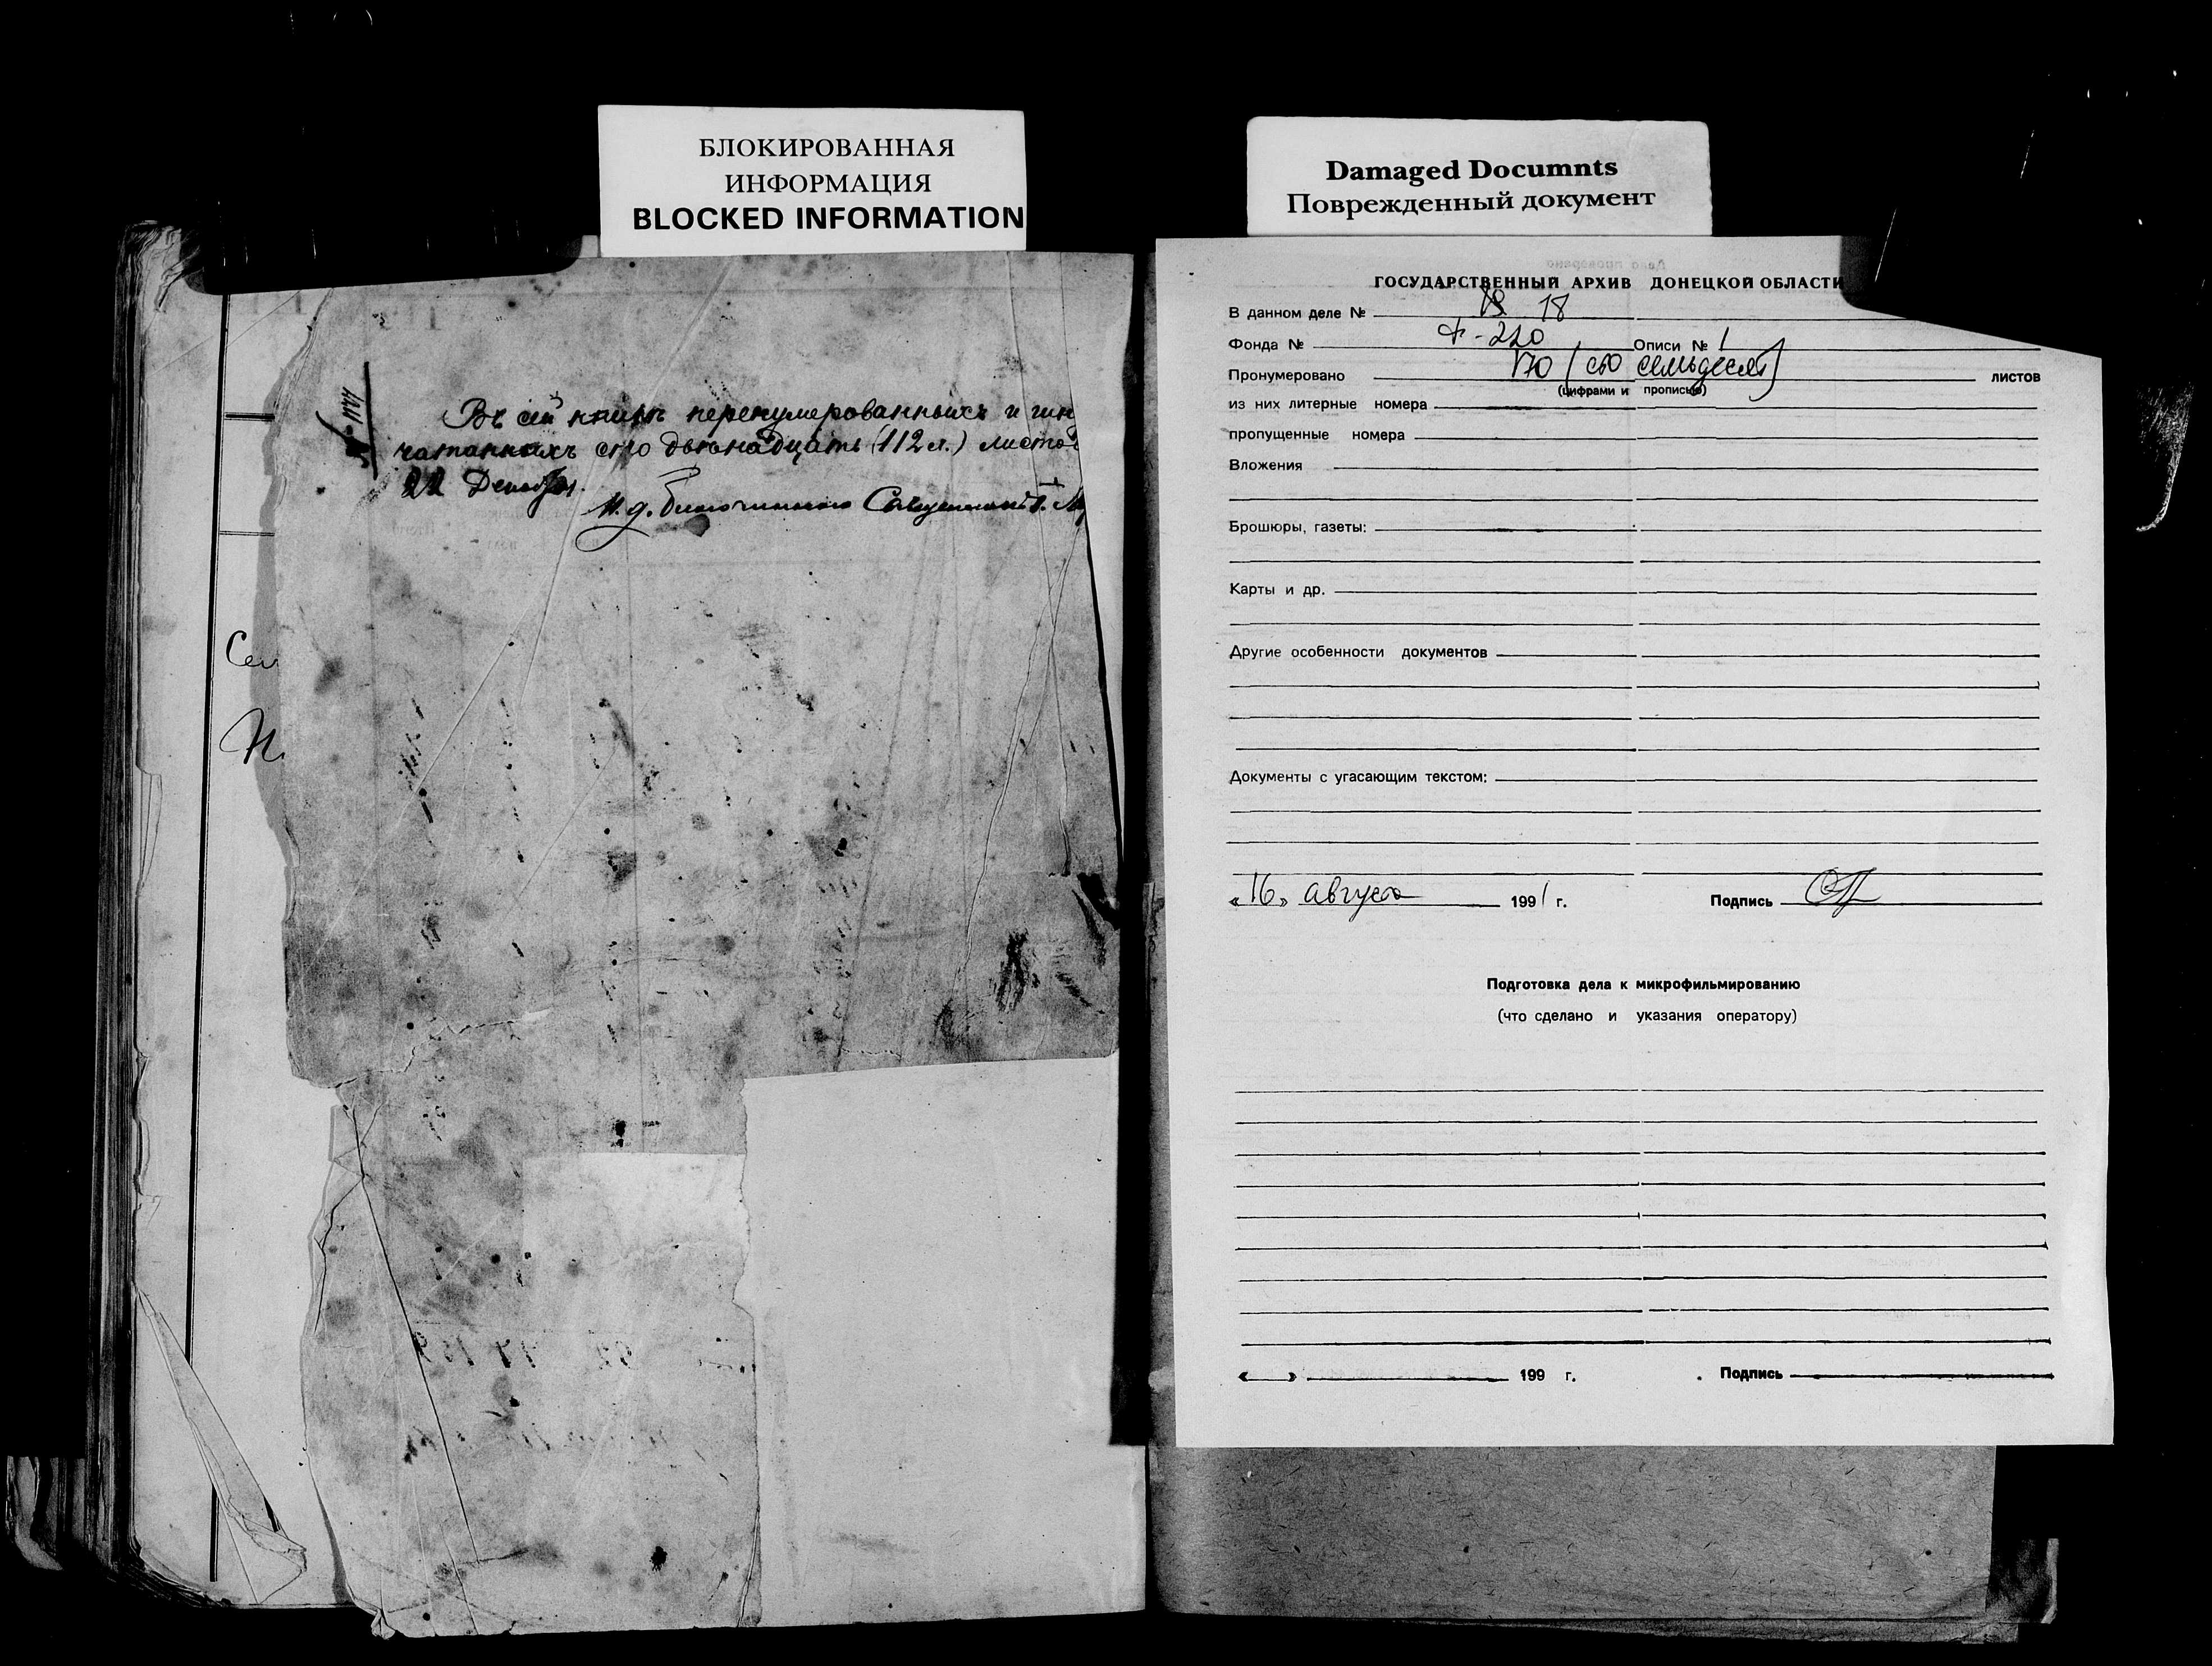 БЛОКИРОВАННАЯ
ИНФОРМАЦИЯ
BLOCKED INFORMATION
Damaged Documnts
Поврежденный документ
Въ сей книгѣ перенумерованныхъ и
чатанныхъ сто двѣнадцать (112 л.) листо
22 Декабря.
И. д. благочиннаго Священникъ
Сеи
ГОСУДАРСТВЕННЫЙ АРХИВ ДОНЕЦКОЙ ОБЛАСТИ
В данном деле № 18
Фонда № Ф-220 Описи № 1
Пронумеровано 170 (сто семьдесят) листов
(цифрами и прописью)
из них литерные номера
пропущенные номера
Вложения
Брошюры, газеты:
Карты и др.
Другие особенности документов
Документы с угасающим текстом:
«16» августа 1991 г. Подпись
Подготовка дела к микрофильмированию
(что сделано и указания оператору)
« » 199 г. Подпись